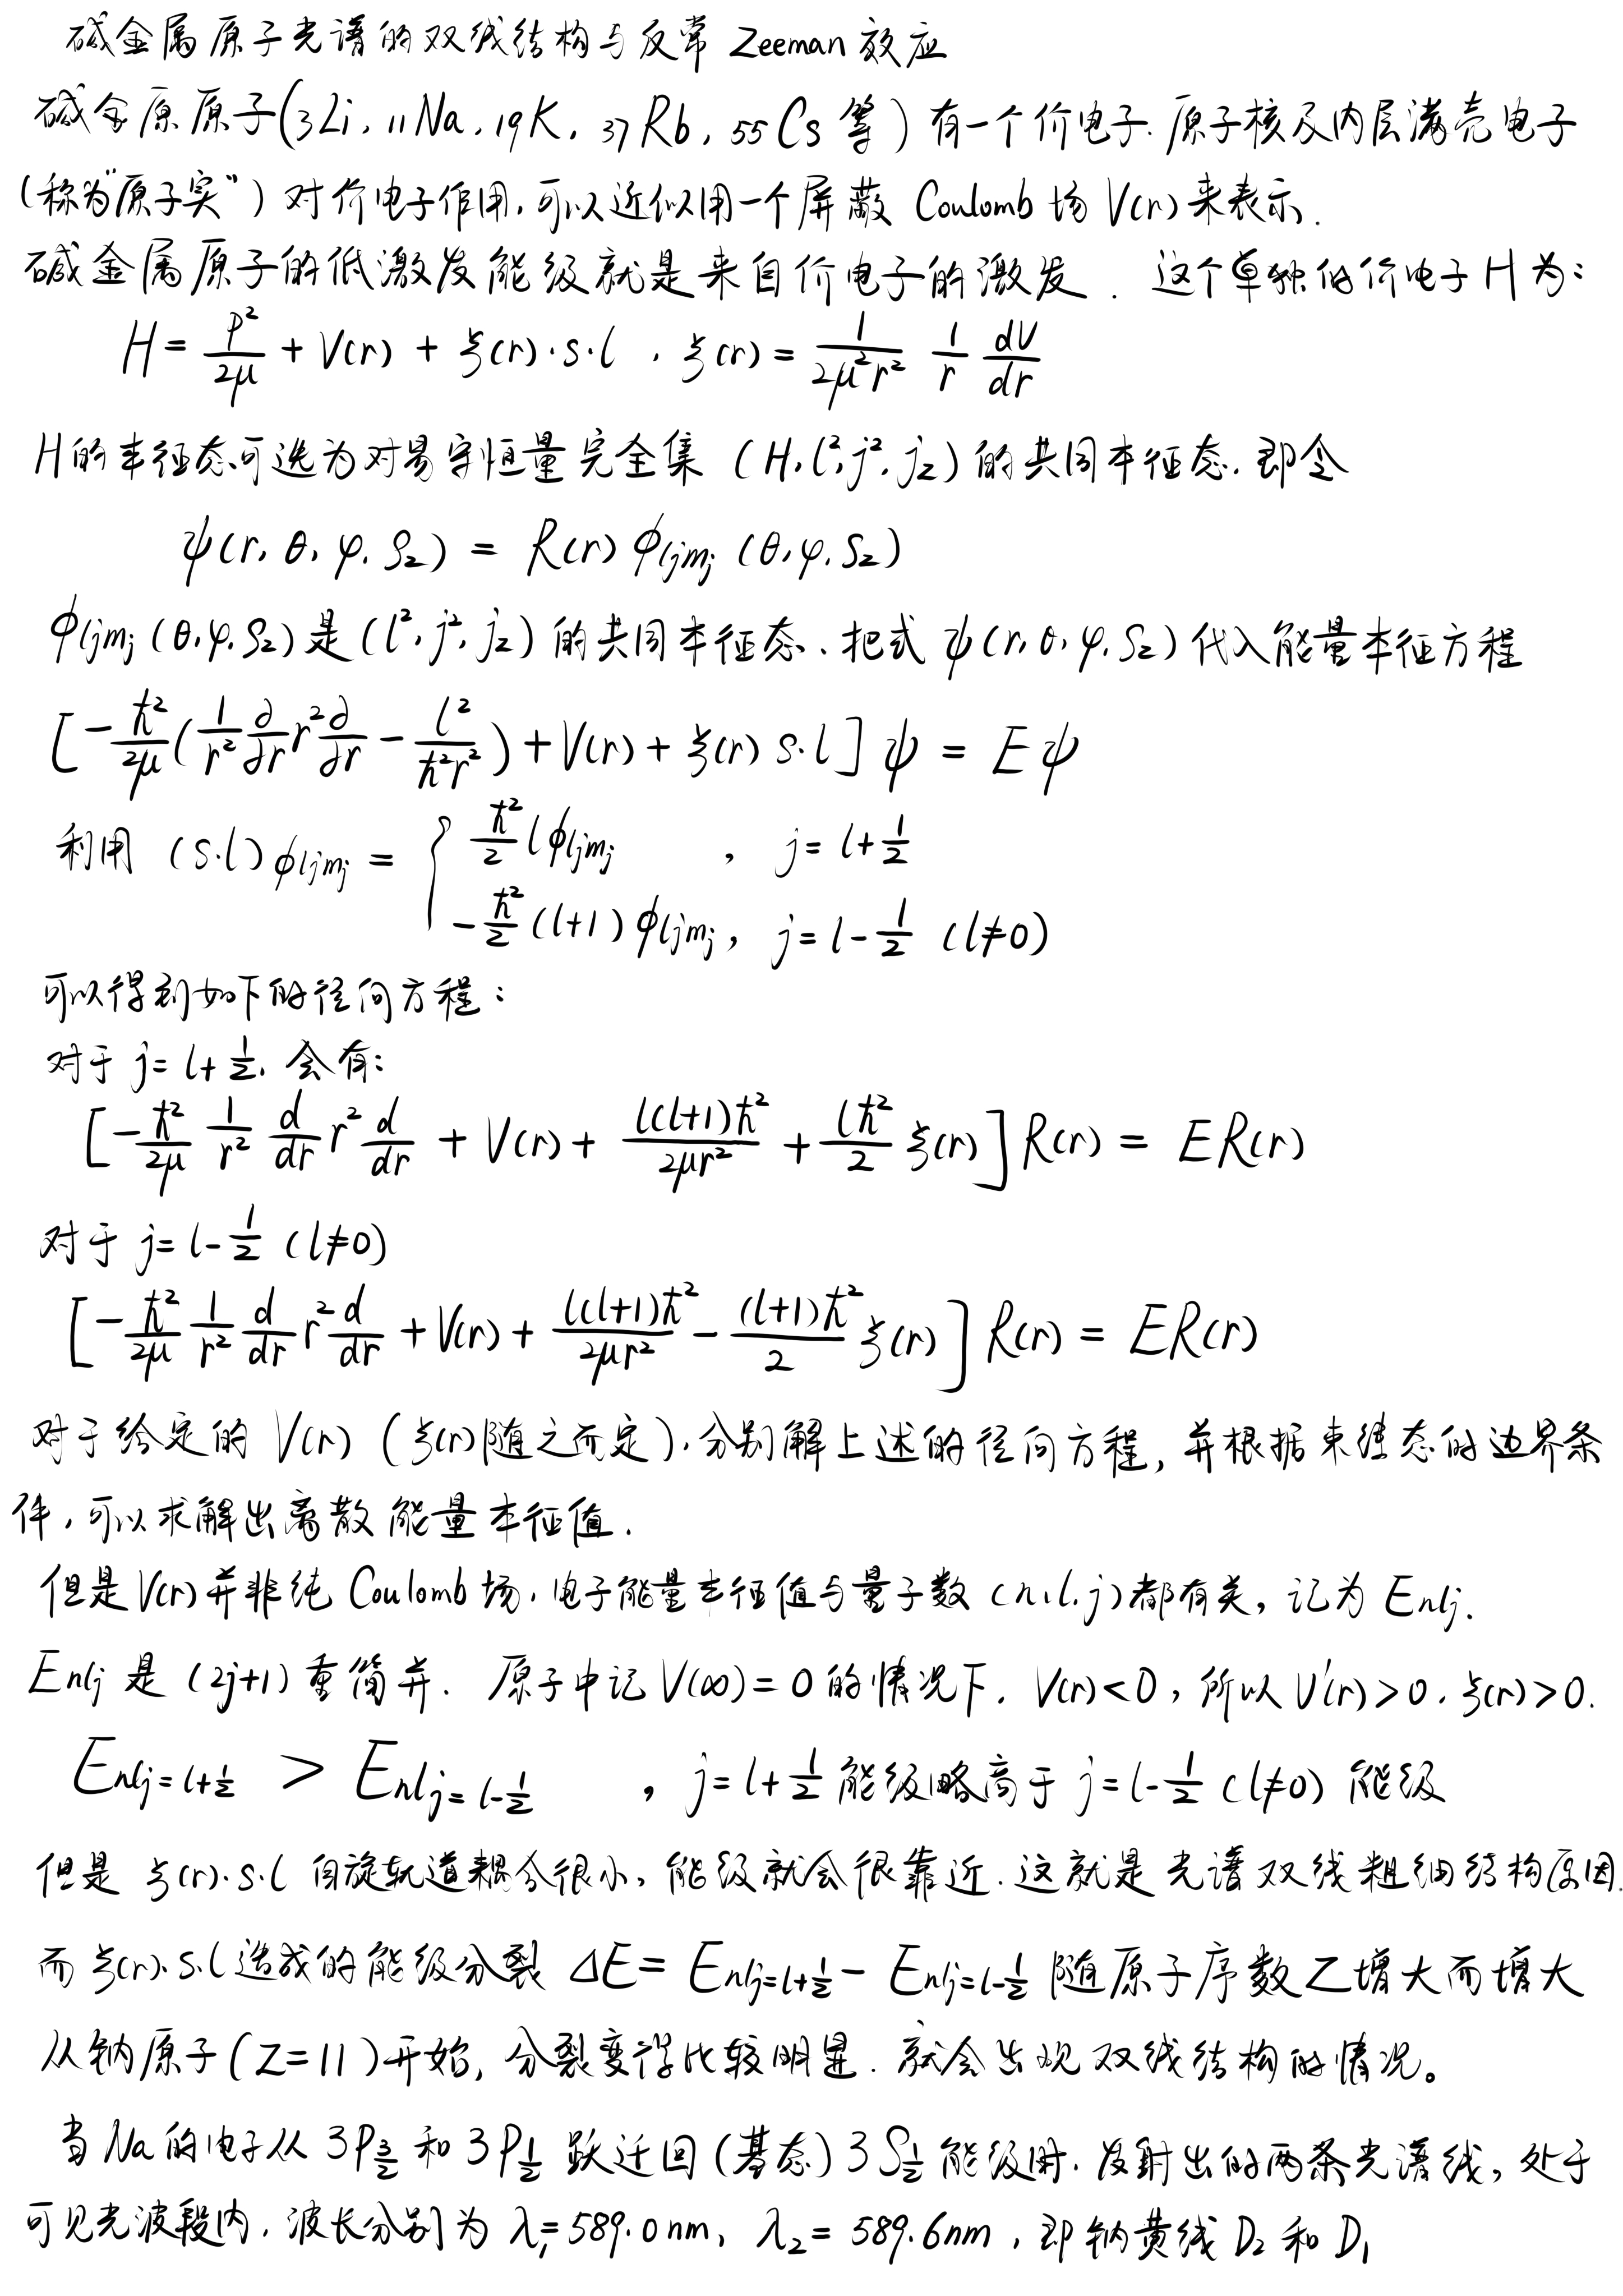 碱金属原子光谱的双线结构与反常 Zeeman 效应
碱金原原子(₃Li, ₁₁Na, ₁₉K, ₃₇Rb, ₅₅Cs 等) 有一个价电子. 原子核及内层满壳电子
(称为"原子实") 对价电子作用, 可以近似用一个屏蔽 Coulomb 场 V(r) 来表示.
碱金属原子的低激发能级就是来自价电子的激发. 这个单独的价电子 H 为:
H = \frac{p^2}{2μ} + V(r) + ξ(r)·s·l , ξ(r) = \frac{1}{2μ^2r^2} \frac{1}{r} \frac{dV}{dr}
H的本征态可选为对易守恒量完全集 (H, l², j², j_z) 的共同本征态. 即令
ψ(r, θ, φ, S_z) = R(r) ϕ_{ljm_j} (θ, φ, S_z)
ϕ_{ljm_j} (θ, φ, S_z) 是 (l², j², j_z) 的共同本征态. 把式 ψ(r, θ, φ, S_z) 代入能量本征方程
[-\frac{ħ^2}{2μ}(\frac{1}{r^2}\frac{∂}{∂r}r^2\frac{∂}{∂r} - \frac{l^2}{ħ^2r^2}) + V(r) + ξ(r) s·l] ψ = Eψ
利用 (s·l) ϕ_{ljm_j} = { \frac{ħ^2}{2} l ϕ_{ljm_j} , j = l+\frac{1}{2}
-\frac{ħ^2}{2} (l+1) ϕ_{ljm_j} , j = l-\frac{1}{2} (l≠0)
可以得到如下的径向方程:
对于 j = l+\frac{1}{2}, 会有:
[-\frac{ħ^2}{2μ} \frac{1}{r^2} \frac{d}{dr} r^2 \frac{d}{dr} + V(r) + \frac{l(l+1)ħ^2}{2μr^2} + \frac{lħ^2}{2} ξ(r)] R(r) = ER(r)
对于 j = l-\frac{1}{2} (l≠0)
[-\frac{ħ^2}{2μ} \frac{1}{r^2} \frac{d}{dr} r^2 \frac{d}{dr} + V(r) + \frac{l(l+1)ħ^2}{2μr^2} - \frac{(l+1)ħ^2}{2} ξ(r)] R(r) = ER(r)
对于给定的 V(r) (ξ(r)随之而定), 分别解上述的径向方程, 并根据束缚态的边界条
件, 可以求解出离散能量本征值.
但是 V(r) 并非纯 Coulomb 场, 电子能量本征值与量子数 (n, l, j) 都有关, 记为 E_{nlj}.
E_{nlj} 是 (2j+1) 重简并. 原子中记 V(∞) = 0 的情况下, V(r) < 0, 所以 V'(r) > 0, ξ(r) > 0.
E_{nlj=l+\frac{1}{2}} > E_{nlj=l-\frac{1}{2}} , j = l+\frac{1}{2} 能级略高于 j = l-\frac{1}{2} (l≠0) 能级
但是 ξ(r)·s·l 自旋轨道耦合很小, 能级就会很靠近. 这就是光谱双线粗细结构原因.
而 ξ(r)·s·l 造成的能级分裂 ΔE = E_{nlj=l+\frac{1}{2}} - E_{nlj=l-\frac{1}{2}} 随原子序数 Z 增大而增大
从钠原子 (Z=11) 开始, 分裂变得比较明显. 就会出现双线结构的情况。
当 Na 的电子从 3P_{\frac{3}{2}} 和 3P_{\frac{1}{2}} 跃迁回 (基态) 3S_{\frac{1}{2}} 能级时. 发射出的两条光谱线, 处于
可见光波段内, 波长分别为 λ₁ = 589.0nm, λ₂ = 589.6nm, 即钠黄线 D₂ 和 D₁